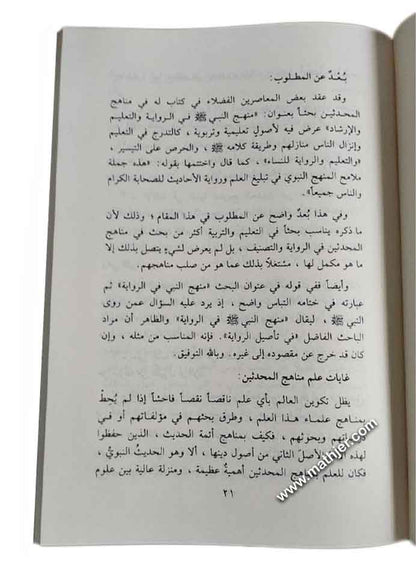 بُعْدٌ عن المطلوب:
وقد عقد بعض المعاصرين الفضلاء في كتاب له في مناهج
المحدثين بحثاً بعنوان: «منهج النبي ﷺ في الرواية والتعليم
والإرشاد» عرض فيه لأصول تعليمية وتربوية، كالتدرج في التعليم
وإنزال الناس منازلهم وطريقة كلامه ﷺ، والحرص على التيسير،
«والتعليم والرواية للنساء»، كما قال واختتمها بقوله: «هذه جملة
ملامح المنهج النبوي في تبليغ العلم ورواية الأحاديث للصحابة الكرام
والناس جميعاً».
وفي هذا بُعدٌ واضح عن المطلوب في هذا المقام؛ وذلك لأن
ما ذكره يناسب بحثاً في التعليم والتربية أكثر من بحث في مناهج
المحدثين في الرواية والتصنيف، بل لم يعرض لشيءٍ يتصل بذلك إلا
ما هو مكمل لها، مشتغلاً بذلك عما هو من صلب مناهجهم.
وأيضاً ففي قوله في عنوان البحث «منهج النبي في الرواية» ثم
عبارته في ختامه التباس واضح، إذ يرد عليه السؤال عمن روى
النبي ﷺ، ليقال «منهج النبي ﷺ في الرواية» والظاهر أن مراد
الباحث الفاضل «في تأصيل الرواية». فإنه المناسب من مثله، وإن
كان قد خرج عن مقصوده إلى غيره. وبالله التوفيق.
غايات علم مناهج المحدثين:
يظل تكوين العالم بأي علم ناقصاً نقصاً فاحشاً إذا لم يُحِطْ
بمناهج علماء هذا العلم، وطرق بحثهم في مؤلفاتهم أو في
وبحوثهم، فكيف بمناهج أئمة الحديث، الذين حفظوا
لهذه الأصل الثاني من أصول دينها، ألا وهو الحديث النبويّ،
فكان للعلم بمناهج المحدثين أهميةٌ عظيمة، ومنزلة عالية بين علوم
٢١
www.mathjer.com